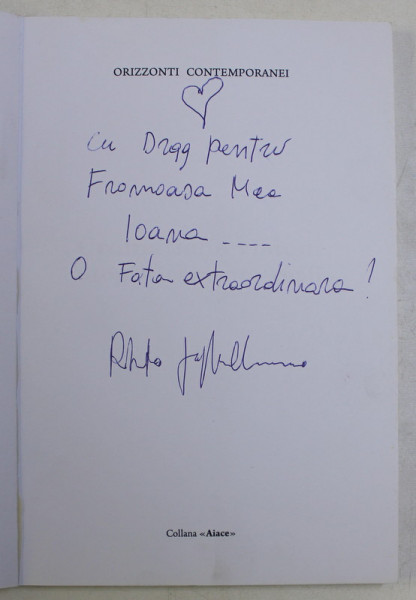 ORIZZONTI CONTEMPORANEI
Cu Drag pentru
Frumoasa Mea
Ioana ----
O Fata extraordinara!
Collana «Aiace»